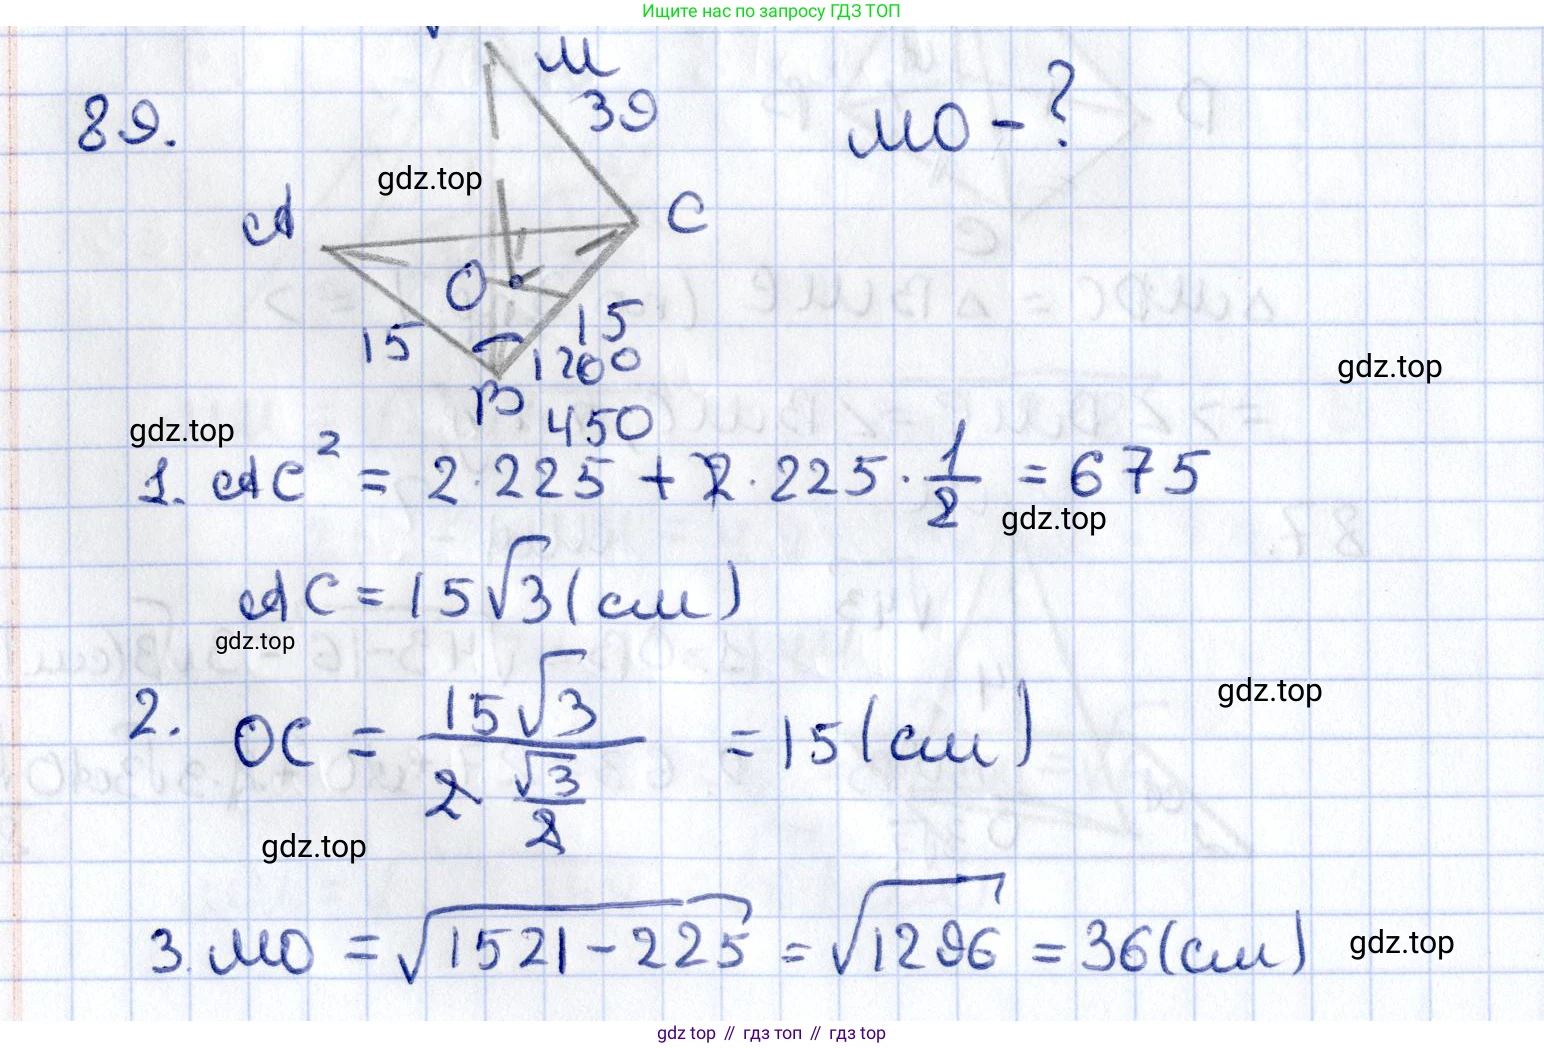 Ищите нас по запросу ГДЗ ТОП
89.
M
39
MO - ?
gdz.top
A
C
O
15
15
120°
B
450
gdz.top
gdz.top
1. AC² = 2·225 + 2·225·1/2 = 675
gdz.top
AC = 15√3 (см)
gdz.top
2. OC = 15√3 / (2·√3/2) = 15 (см)
gdz.top
gdz.top
3. MO = √(1521-225) = √1296 = 36 (см)
gdz.top
gdz top // гдз топ // gdz top